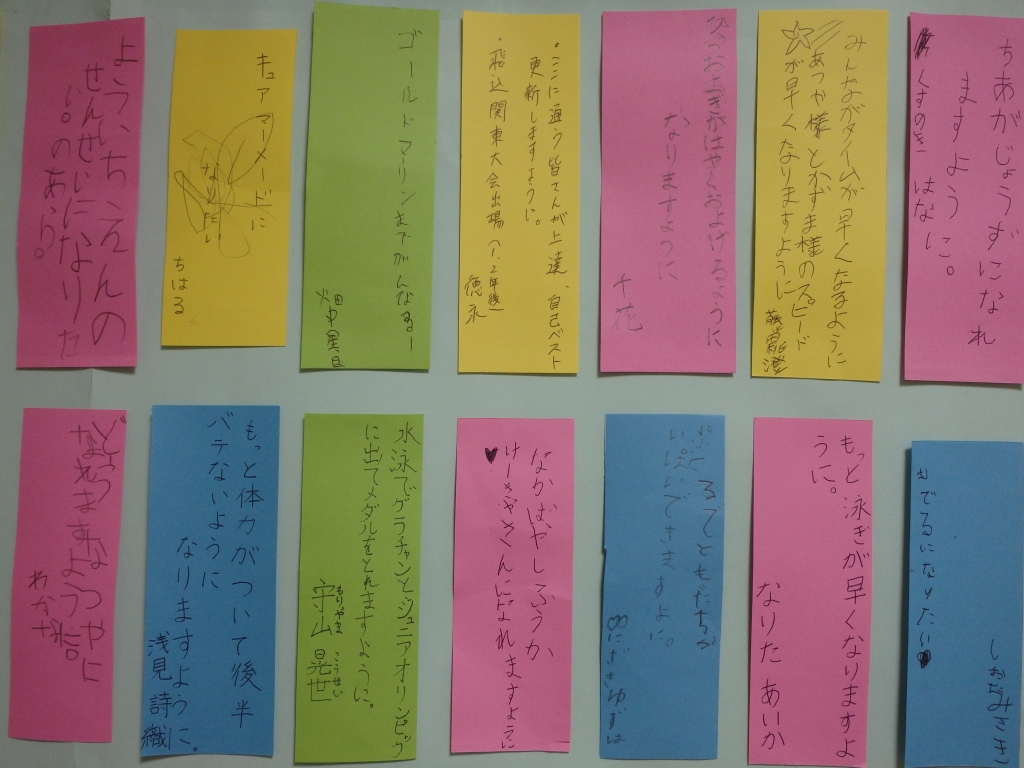 ちあがじょうずになれ
ますように。
くすのき はな
みんながタイムが早くなるように
あつか様とかずま様のスピード
が早くなりますように
およげるように
なりますように
千花
・ここに通う皆さんが上達、自己ベスト
更新しますように。
・飛込関東大会出場(1、2年後)
徳永
ゴールドマリンまでがんばるー
畑中星
キュアマーメードに
なりたい
ちはる
ようちえんの
せんせいになりた
い。のあら。
もでるになりたい
しおなみさき
もっと泳ぎが早くなりますよ
うに。
なりた あいか
けーきやさんになれますように
ともだちが
いっぱいできますよに。
水泳でグラチャンとジュニアオリンピック
に出てメダルをとれますように。
守山 晃世
もりやま こうせい
もっと体力がついて後半
バテないように
なりますように。
浅見詩織
なれますように
わかな